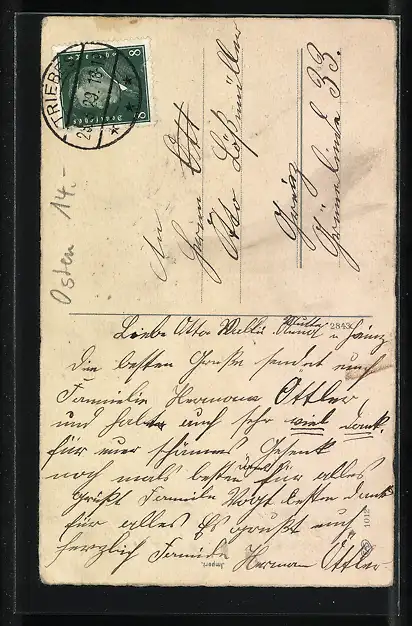 TRIEBES
29. 16
Deutsches Reich
8 8
Osten 14.-
An
Herrn
Otto
Greiz
Grüne Linde 33.
Liebe Otto Willi Mutter u Heinz
2843
die besten Grüße sendet euch
Familie Hermann Öttler
und habt auch sehr viel Dank
für euer schönes Gesenk
noch mals besten für alles
grüßt Familie Vogt besten Dank
für alles Es grüßt euch
herzlich Familie Hermann Öttler
1012
Import.